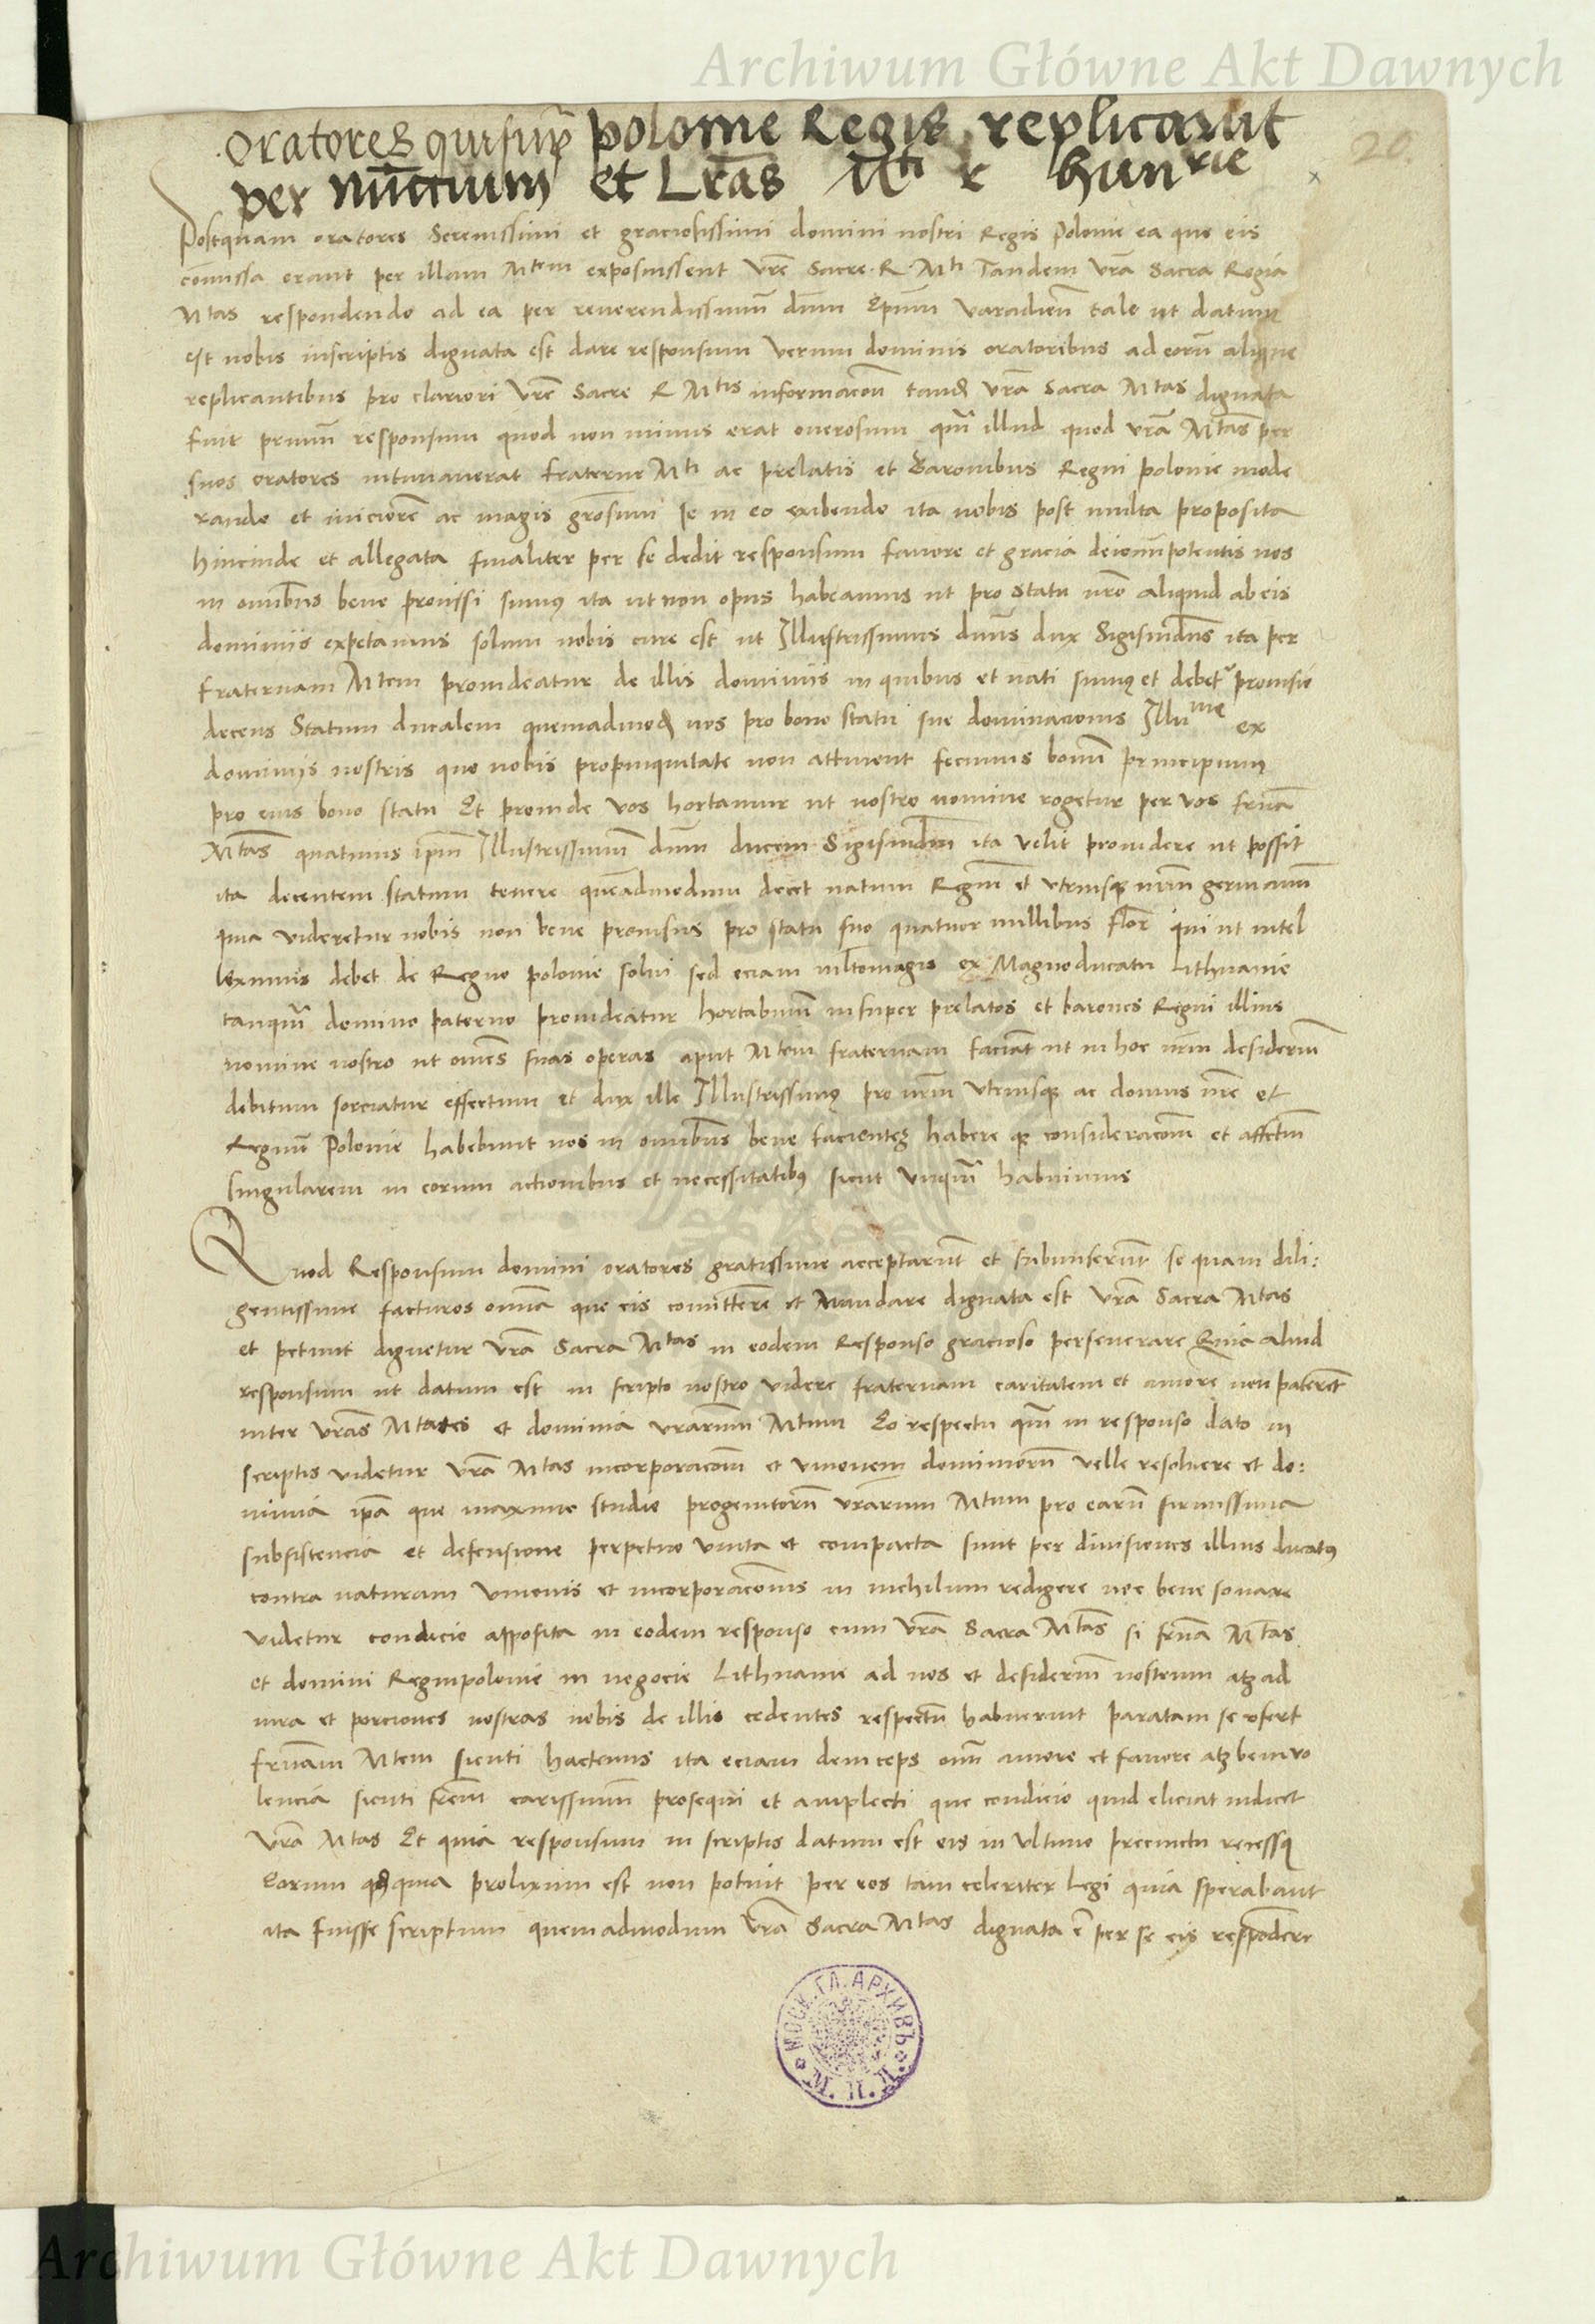 Archiwum Główne Akt Dawnych
20.
Oratores qui supra polonie Regis replicarunt
per nunccium et Lras Mti r hunrie
Postquam oratores Serenissimi et graciosissimi domini nostri Regis Polonie ea que eis
comissa erant per illam Mtem exposuissent Vre Sacre R Mti Tandem Vra Sacra Regia
Mtas respondendo ad ea per reverendissimum dnm Epum Varadien tale ut datum
est nobis inscriptis dignata est dare responsum Verum dominis oratoribus ad eorum
replicantibus pro clariori Vre Sacre R Mtis informacom tand Vra Sacra Mtas dignata
fuit primum responsum quod non minus erat onerosum qm illud quod Vra Mtas per
suos oratores intimaverat fraterne Mti ac prelatis et Baronibus Regni polonie mode
rando et miciorem ac magis grosum se in eo exibendo ita nobis post multa proposita
hincinde et allegata finaliter per se dedit responsum favore et gracia dei omnipotentis nos
in omnibus bene provisi sumus ita ut non opus habeamus ut pro statu nro aliquid ab eis
dominiis expetamus solum nobis cure est ut Illustrissimus dnus dux Sigismdus ita per
fraternam Mtem provideatur de illis dominiis in quibus et nati sumus et debetr provisio
decens Statum ducalem quemadmod nos pro bono statu sue dominacionis Illume ex
dominiis nostris que nobis propinquitate non attinent fecimus bonum principium
pro eius bono statu Et proinde vos hortamur ut nostro nomine rogetur per vos frna
Mtas quatinus ipm Illustrissimum dnm ducem Sigismdm ita velit providere ut possit
ita decentem statum tenere queadmodum decet natum Regium et utriusque nrm germanum
quia videretur nobis non bene provisus pro statu suo quatuor millibus flor qui ut intel
leximus debet de Regno polonie solui sed eciam multomagis ex Magnoducatu Lithuanie
tanqm domino paterno provideatur hortabimini insuper prelatos et barones Regni illius
nomine nostro ut omnes suas operas aput Mtem fraternam faciant ut in hoc nrm desiderium
debitum sorciatur effectum et dux ille Illustrissimus pro nrm utriusque ac domus nre et
Regnum Polonie habebunt nos in omnibus bene facientes habere que consideracom et affctum
singularem in eorum actionibus et necessitatibus sicut unquam habuimus
Quod Responsum domini oratores gratissime acceptarunt et subiunxerunt se quam dili:
gentissime facturos omnia que eis comittere et Mandare dignata est Vra Sacra Mtas
et petunt dignetur Vra Sacra Mtas in eodem Responso gracioso perseverare Quia aliud
responsum ut datum est in scripto nostro videre fraternam caritatem et amore non paterent
inter Vras Mtates et dominia vrarum Mtum Eo respectu qm in responso dato in
scriptis videtur Vra Mtas incorporacom et unionem dominiorum velle resolvere et do:
minia ipa que maximo studio progenitorum vrarum Mtum pro earum firmissima
subsistencia et defensione perpetuo unita et compacta sunt per divisiones illius ducatus
contra naturam Unionis et incorporacionis in nichilum redigere nec bene sonare
videtur condicio apposita in eodem responso cum Vra Sacra Mtas si frna Mtas
et domini Regnipolonie in negocie Lithuanie ad nos et desiderium nostrum atque ad
iura et porciones nostras nobis de illis cedentes respectum habuerint paratam se ofert
frnam Mtem sicuti hactenus ita eciam deinceps omni amore et favore atque benivo
lencia sicuti frem carissimum prosequi et amplecti que condicio quid eliciat iudicet
Vra Mtas Et quia responsum in scriptis datum est eis in ultimo precinctu recessus
eorum quodquia prolixum est non potuit per eos tam celeriter legi quia sperabant
ita fuisse scriptum quemadmodum Vra Sacra Mtas dignata e per se eis respondere
МОСК. ГЛ. АРХИВЪ
М. И. Д.
Archiwum Główne Akt Dawnych